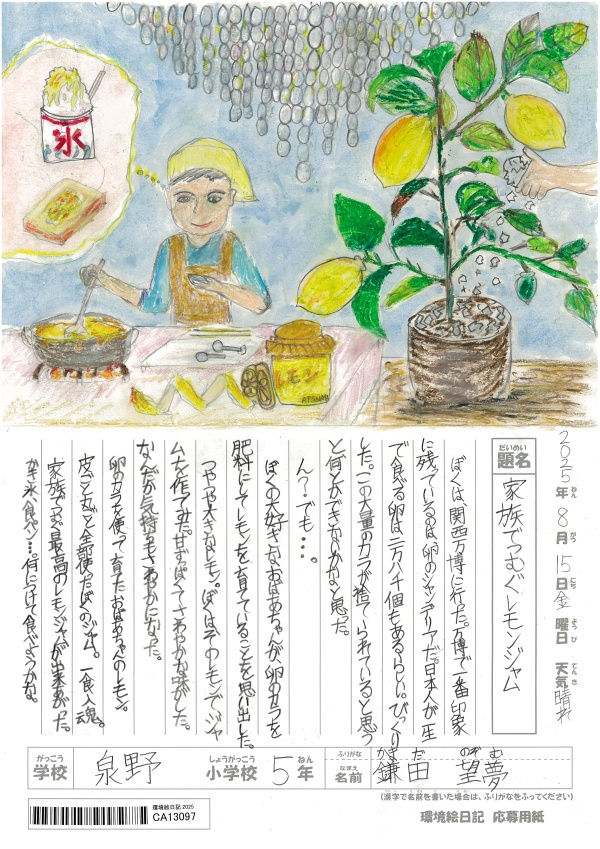 氷
レモン
ATSUMI
2025年 8月 15日 金曜日 天気 晴れ
ねん がつ にち ようび てんき
だいめい
題名 家族でつむぐレモンジャム
ぼくは、関西万博に行った。万博で一番印象
に残っているのは、卵のシャンデリアだ。日本人が一生
で食べる卵は二万八千個もあるらしい。びっくり
した。この大量のカラが捨てられていると思う
と何とかできないかな。と思った。
ん？でも…。
ぼくの大好きなおばあちゃんが、卵のカラを
肥料にしてレモンを育てていることを思い出した。
つやつや大きなレモン。ぼくはそのレモンでジャ
ムを作ってみた。甘ずっぱくてさわやかな味がした。
なんだか気持ちもさわやかになった。
卵のカラを使って育てたおばあちゃんのレモン。
皮ごと丸ごと全部使ったぼくのジャム。一食入魂。
家族でつむぐ最高のレモンジャムが出来あがった。
かき氷、食パン…。何につけて食べようかな。
がっこう しょうがっこう ねん
学校 泉野 小学校 5年
ふりがな かま だ のぞ む
なまえ
名前 鎌田 望夢
(漢字で名前を書いた場合は、ふりがなをふってください)
環境絵日記 2025
CA13097
環境絵日記 応募用紙